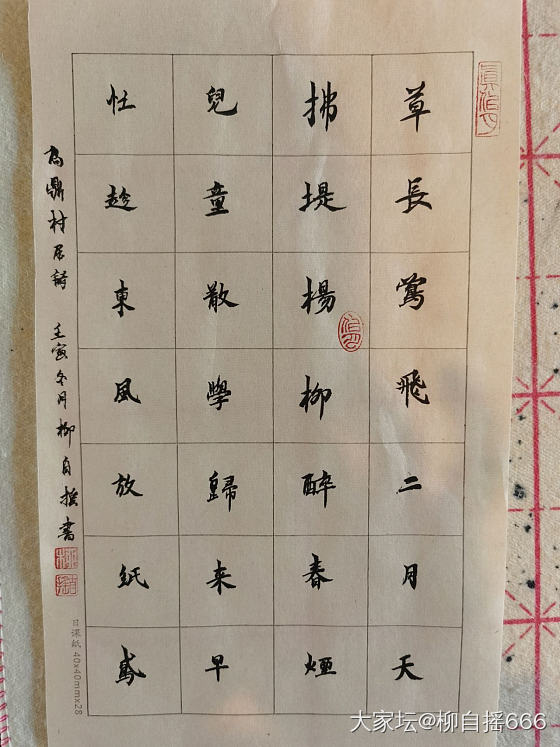 草長鶯飛二月天
拂堤楊柳醉春煙
兒童散學歸來早
忙趁東風放紙鳶
高鼎村居詩 壬寅冬月柳自摇書
日課紙 40x40mmx28
大家坛@柳自摇666